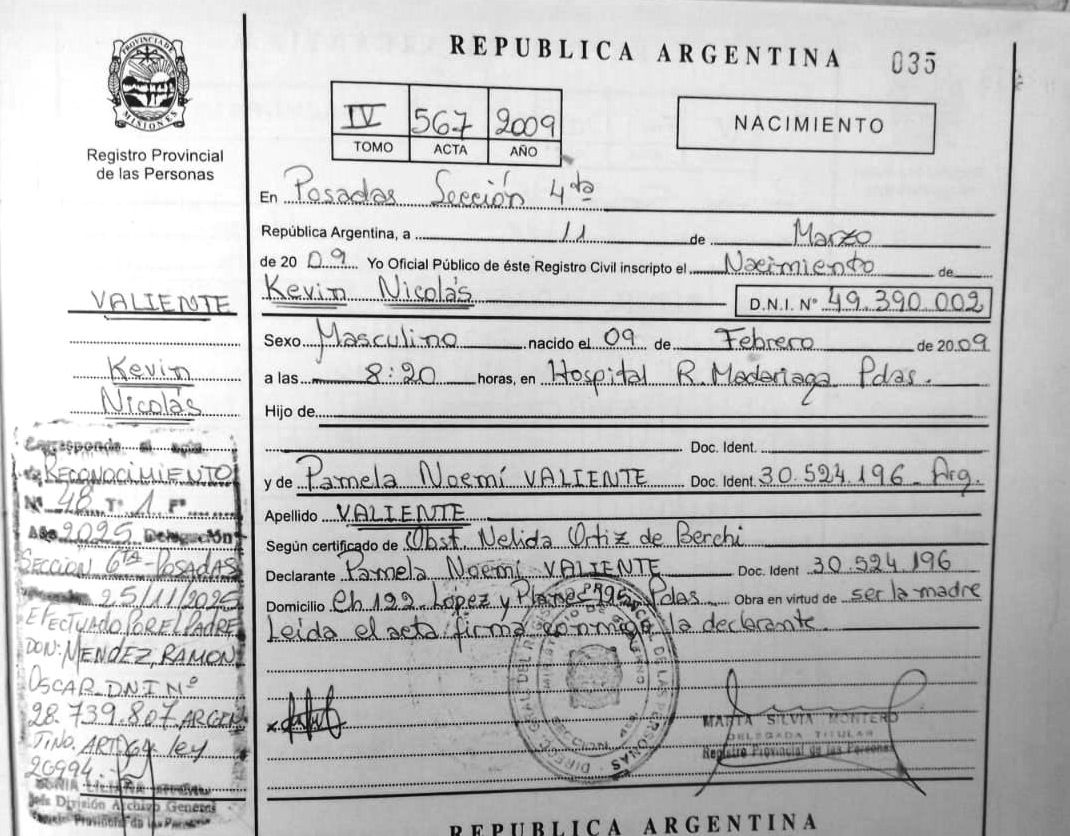 REPUBLICA ARGENTINA
035
PROVINCIA DE
MISIONES
Registro Provincial
de las Personas
IV 567 2009
TOMO ACTA AÑO
NACIMIENTO
En Posadas Sección 4ta
República Argentina, a 11 de Marzo
de 20 09 Yo Oficial Público de éste Registro Civil inscripto el Nacimiento de
Kevin Nicolás D.N.I. Nº 49.390.002
Sexo Masculino nacido el 09 de Febrero de 20 09
a las 8:20 horas, en Hospital R. Madariaga Pdas.
Hijo de
Doc. Ident.
y de Pamela Noemí VALIENTE Doc. Ident. 30.524.196 Arg.
Apellido VALIENTE
Según certificado de Obst. Nelida Ortiz de Berchi
Declarante Pamela Noemí VALIENTE Doc. Ident 30.524.196
Domicilio Ch 122 López y Planes Pdas. Obra en virtud de ser la madre
Leída el acta firma conmigo la declarante.
VALIENTE
Kevin
Nicolás
Corresponde al acta
de RECONOCIMIENTO
Nº 48 Tº 1 Fº
Año 2025 Delegación
SECCION 6TA-POSADAS
25/11/2025
EFECTUADO POR EL PADRE
DON: MENDEZ, RAMON
OSCAR D.N.I Nº
28.739.807 ARGEN
TINO. ley
20994.
Jefe División Archivo General
Registro Provincial de las Personas
MARTA SILVIA MONTERO
DELEGADA TITULAR
Registro Provincial de las Personas
REPUBLICA ARGENTINA